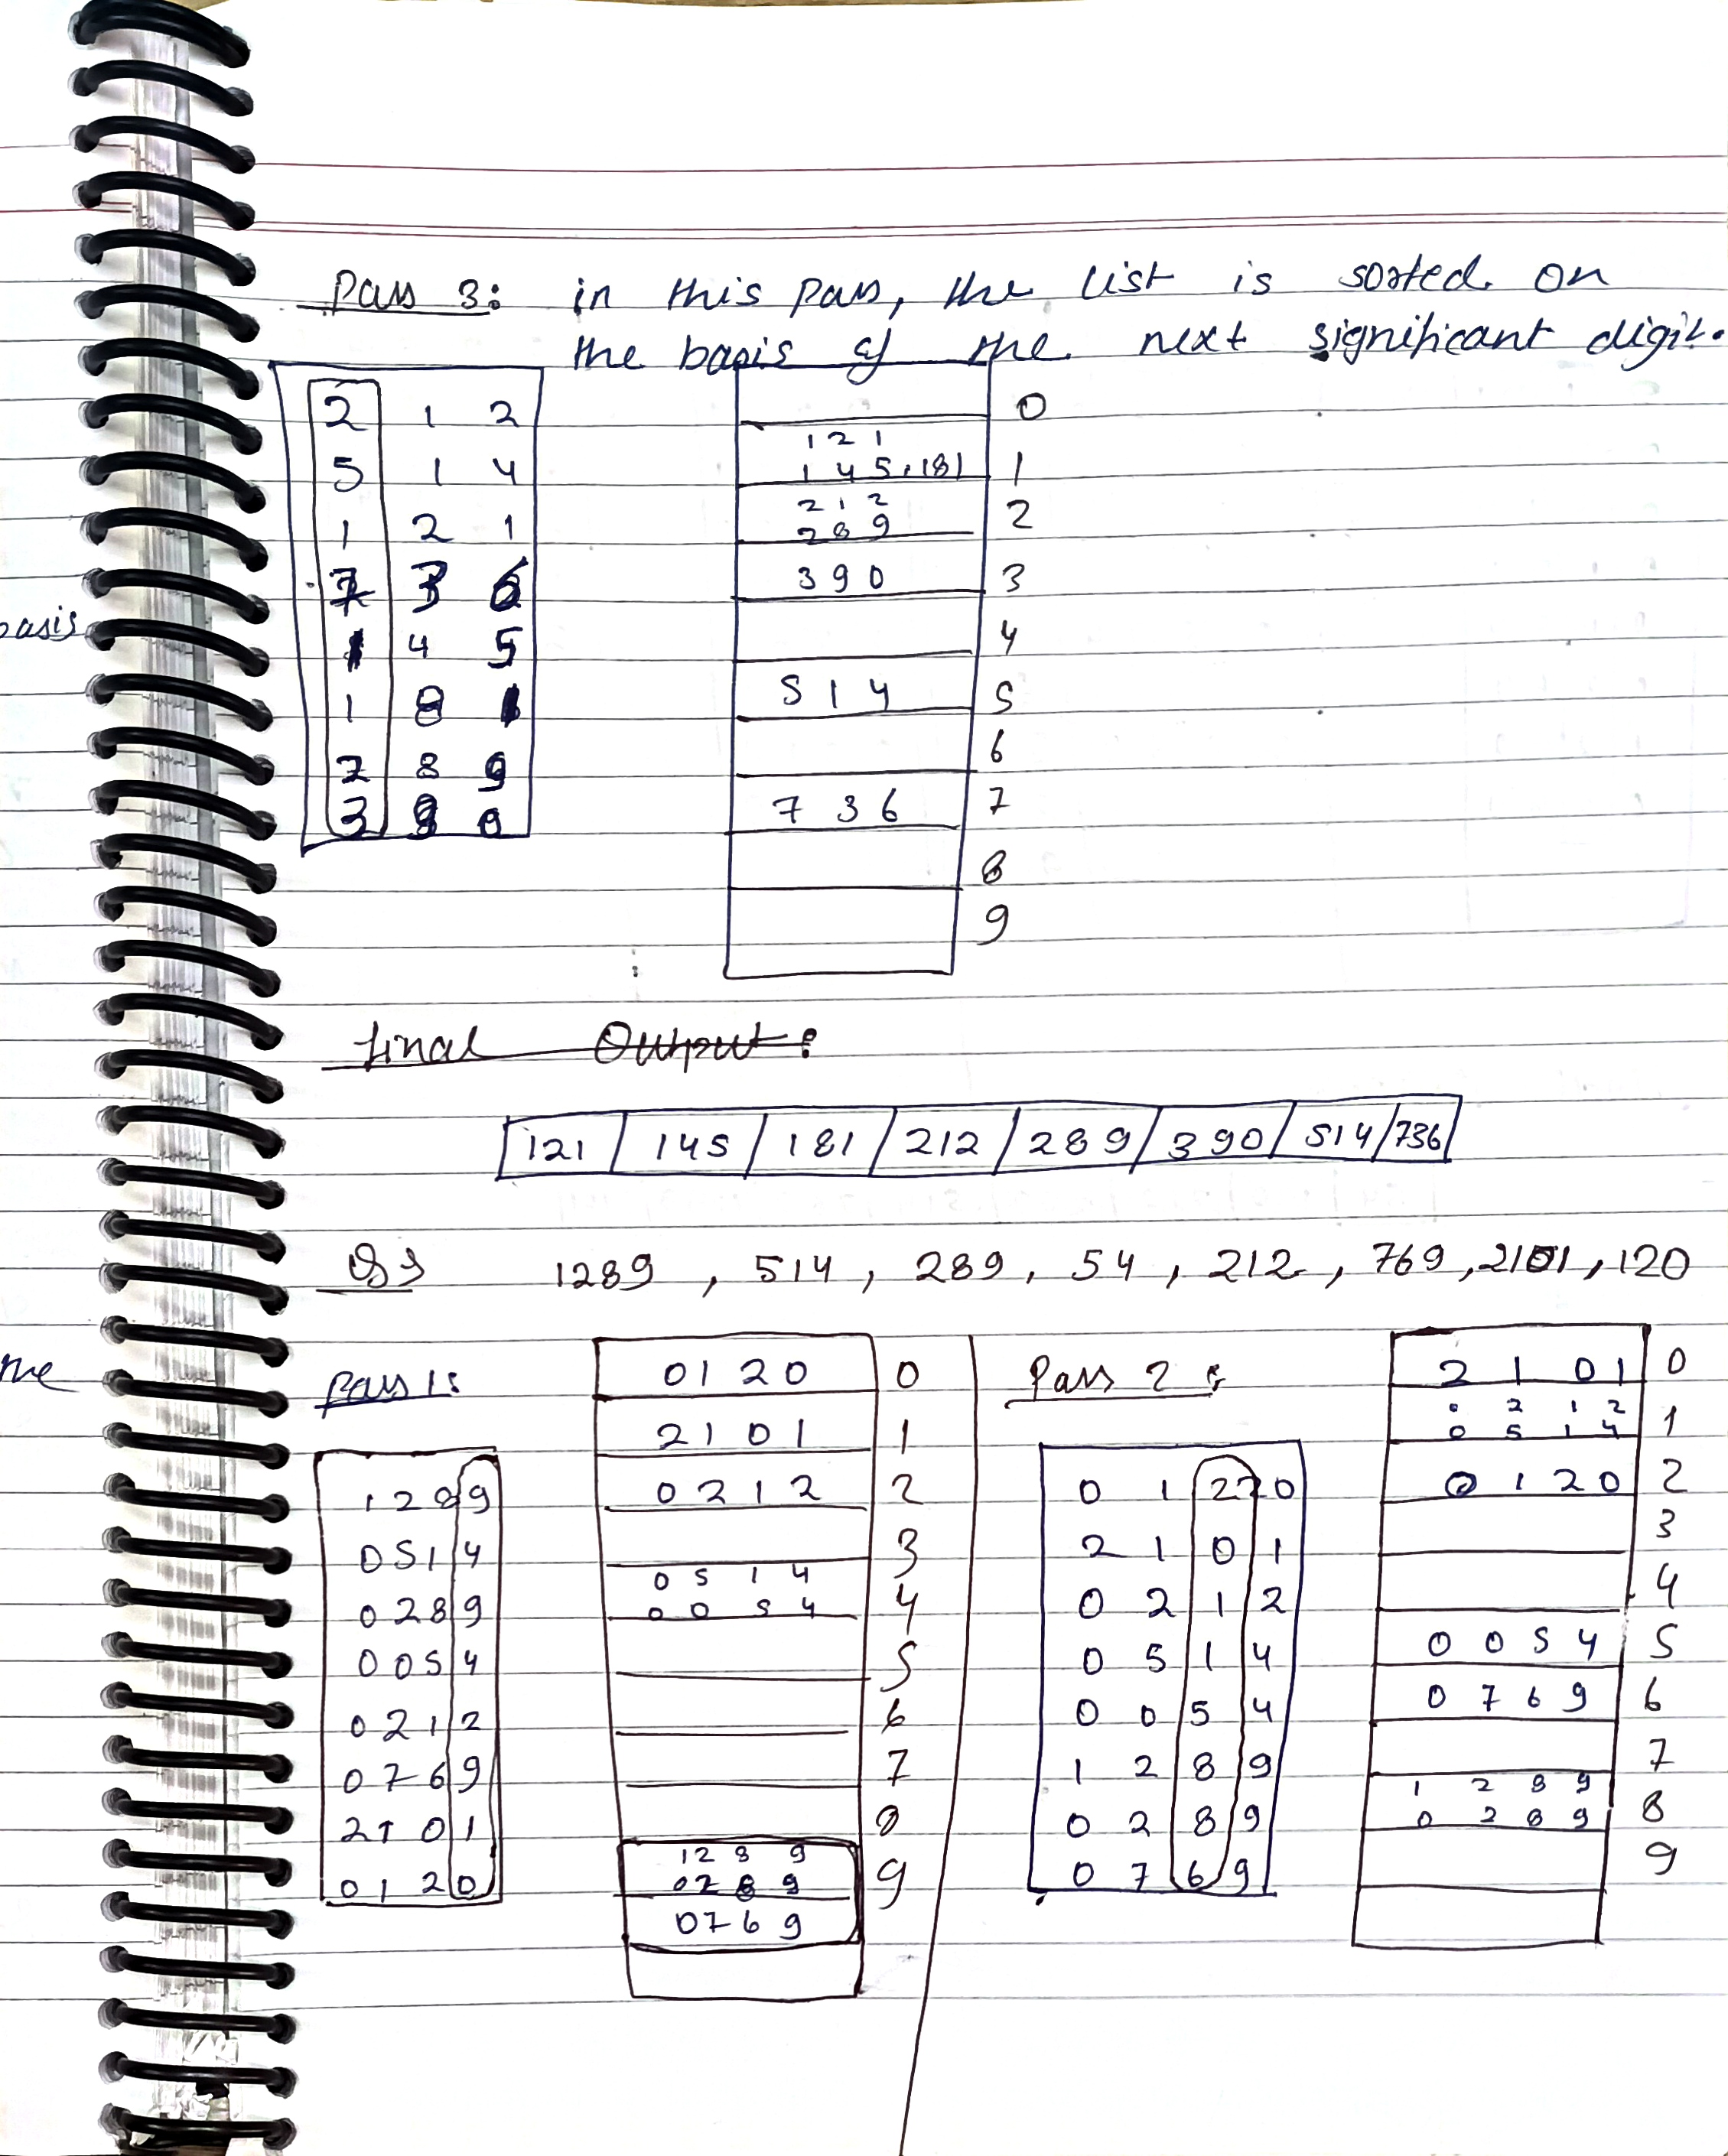 Pass 3: in this pass, the list is sorted on
the basis of the next significant digit.
2 1 2
5 1 4
1 2 1
7 3 6
1 4 5
1 8 1
2 8 9
3 9 0
0
1 2 1
1 4 5, 181 1
2 1 2
2 8 9 2
3 9 0 3
4
5 1 4 5
6
7 3 6 7
8
9
basis
Final Output:
121 145 181 212 289 390 514 736
1289, 514, 289, 54, 212, 769, 2101, 120
the
Pass 1:
1 2 8 9
0 5 1 4
0 2 8 9
0 0 5 4
0 2 1 2
0 7 6 9
2 1 0 1
0 1 2 0
0 1 2 0 0
2 1 0 1 1
0 2 1 2 2
3
0 5 1 4
0 0 5 4 4
5
6
7
8
1 2 8 9
0 2 8 9 9
0 7 6 9
Pass 2:
0 1 2 0
2 1 0 1
0 2 1 2
0 5 1 4
0 0 5 4
1 2 8 9
0 2 8 9
0 7 6 9
2 1 0 1 0
0 2 1 2
0 5 1 4 1
0 1 2 0 2
3
4
0 0 5 4 5
0 7 6 9 6
7
1 2 8 9
0 2 8 9 8
9